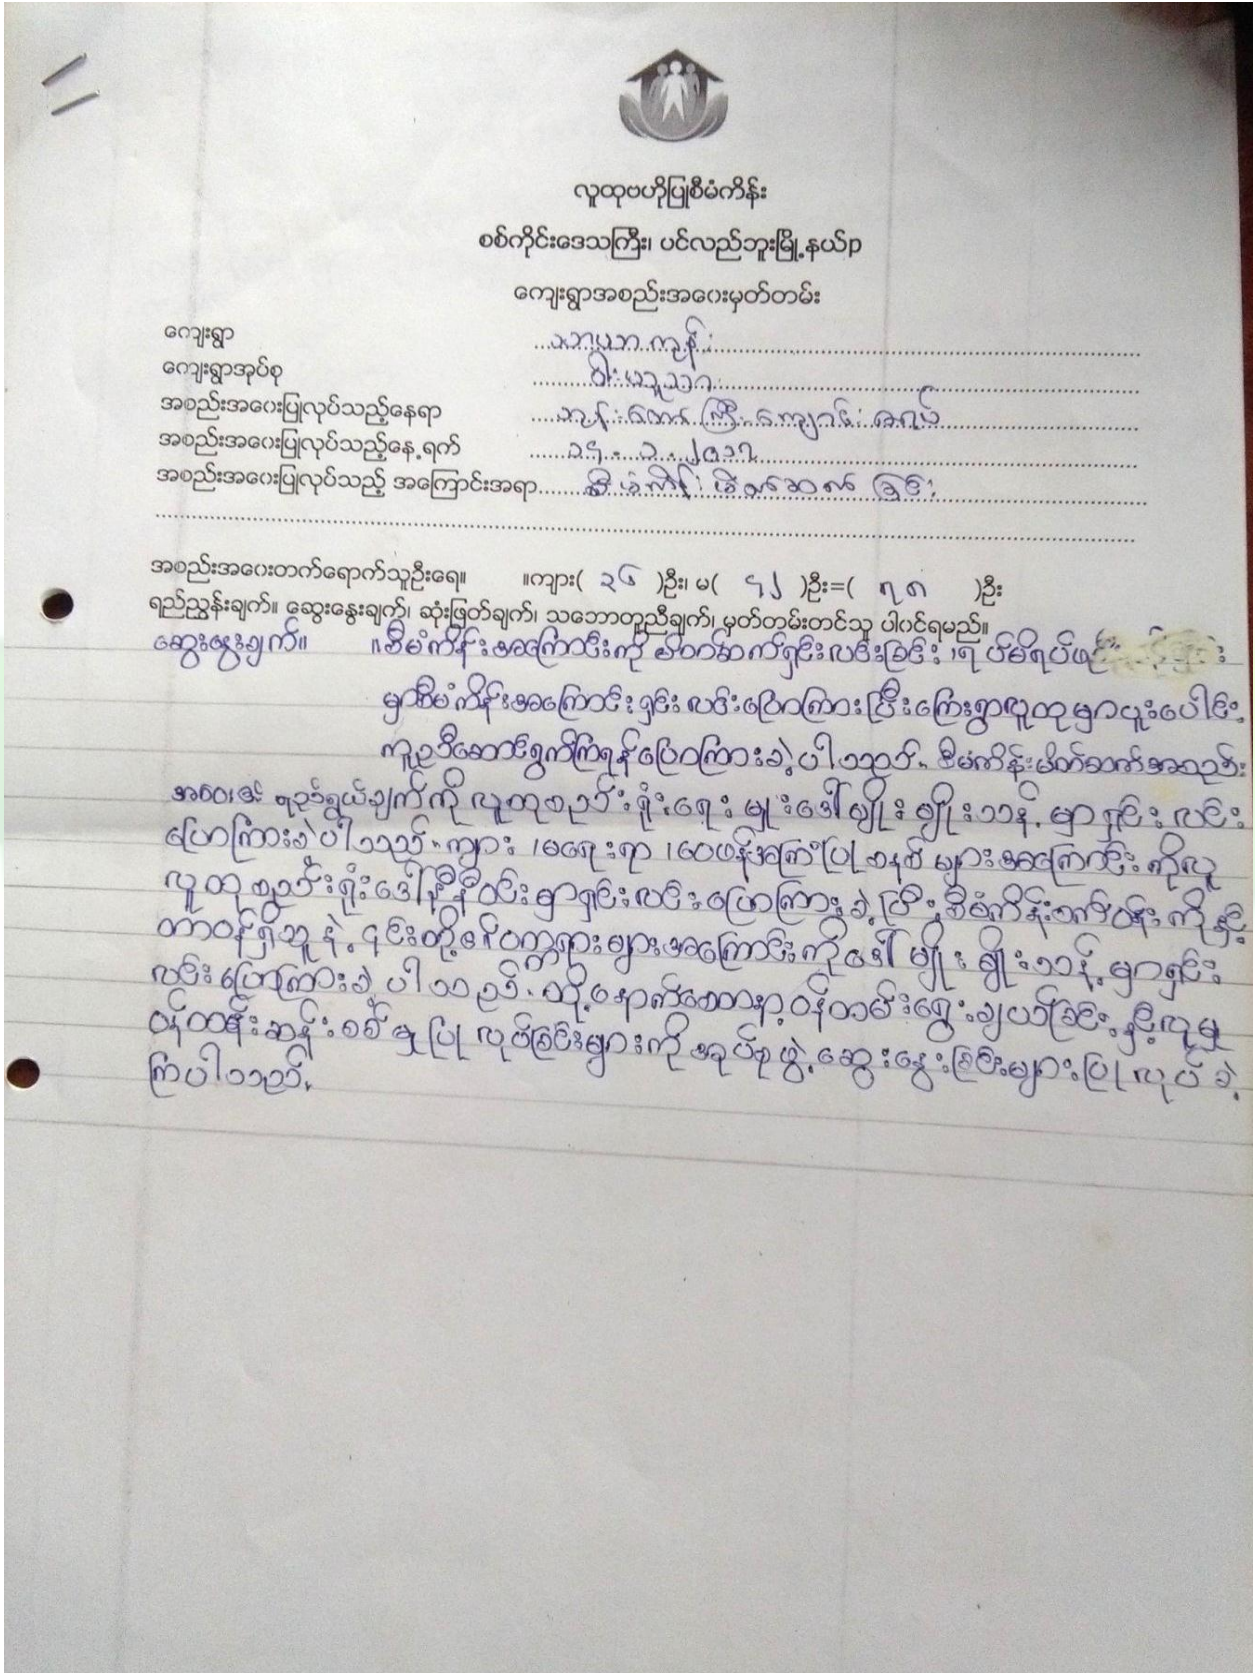 လူထုဗဟိုပြုစီမံကိန်း
စစ်ကိုင်းဒေသကြီး၊ ပင်လည်ဘူးမြို့နယ်p
ကျေးရွာအစည်းအဝေးမှတ်တမ်း
ကျေးရွာ ကျွန်း
ကျေးရွာအုပ်စု
အစည်းအဝေးပြုလုပ်သည့်နေရာ ဘုန်းတော်ကြီးကျောင်း ဇရပ်
အစည်းအဝေးပြုလုပ်သည့်နေ့ရက် ၁၄.၁.၂၀၁၇
အစည်းအဝေးပြုလုပ်သည့် အကြောင်းအရာ စီမံကိန်း မိတ်ဆက် ခြင်း
အစည်းအဝေးတက်ရောက်သူဦးရေ။ ။ကျား( ၃၆ )ဦး၊ မ( ၄၂ )ဦး=( ၇၈ )ဦး
ရည်ညွှန်းချက်။ ဆွေးနွေးချက်၊ ဆုံးဖြတ်ချက်၊ သဘောတူညီချက်၊ မှတ်တမ်းတင်သူ ပါဝင်ရမည်။
ဆွေးနွေးချက်။ ။စီမံကိန်းအကြောင်းကို မိတ်ဆက်ရှင်းလင်းခြင်း၊ ရပ်မိရပ်ဖ
မှစီမံကိန်းအကြောင်းရှင်းလင်းပြောကြားပြီးကြေးရွာလူထုမှပူးပေါင်း
ကူညီဆောင်ရွက်ကြရန်ပြောကြားခဲ့ပါသည်။ စီမံကိန်းမိတ်ဆက်အစည်း
အဝေး၏ ရည်ရွယ်ချက်ကို လူထုစည်းရုံးရေးမှူးဒေါ်မျိုးမျိုးသန့်မှရှင်းလင်း
ပြောကြားခဲ့ပါသည်။ ကျား၊မရေးရာ၊ဝေဖန်အကြံပြုစနစ်များအကြောင်းကိုလူ
လူထုစည်းရုံးဒေါ်နီနီဝင်းမှရှင်းလင်းပြောကြားခဲ့ပြီးစီမံကိန်းစက်ဝန်းကိုနှင့်
တာဝန်ရှိသူနဲ့၎င်းတို့၏ဝတ္တရားများအကြောင်းကိုဒေါ်မျိုးမျိုးသန့်မှရှင်း
လင်းပြောကြားခဲ့ပါသည်။ ထို့နောက်စေတနာ့ဝန်ထမ်းရွေးချယ်ခြင်းနှင့်လူမှု
ဝန်ထမ်းဆန်းစစ်မှုပြုလုပ်ခြင်းများကိုအုပ်စုဖွဲ့ဆွေးနွေးခြင်းများပြုလုပ်ခဲ့
ကြပါသည်။